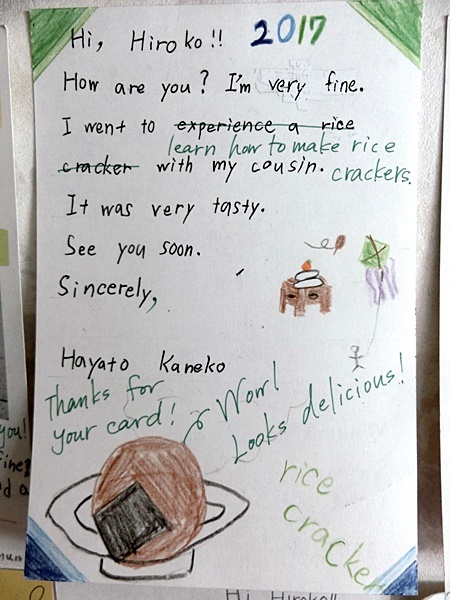 Hi, Hiroko!! 2017
How are you? I'm very fine.
I went to experience a rice
learn how to make rice
cracker with my cousin. crackers.
It was very tasty.
See you soon.
Sincerely,
Hayato Kaneko
Thanks for
your card!
Wow!
Looks delicious!
rice
cracker
you!
Hi Hiroko!!